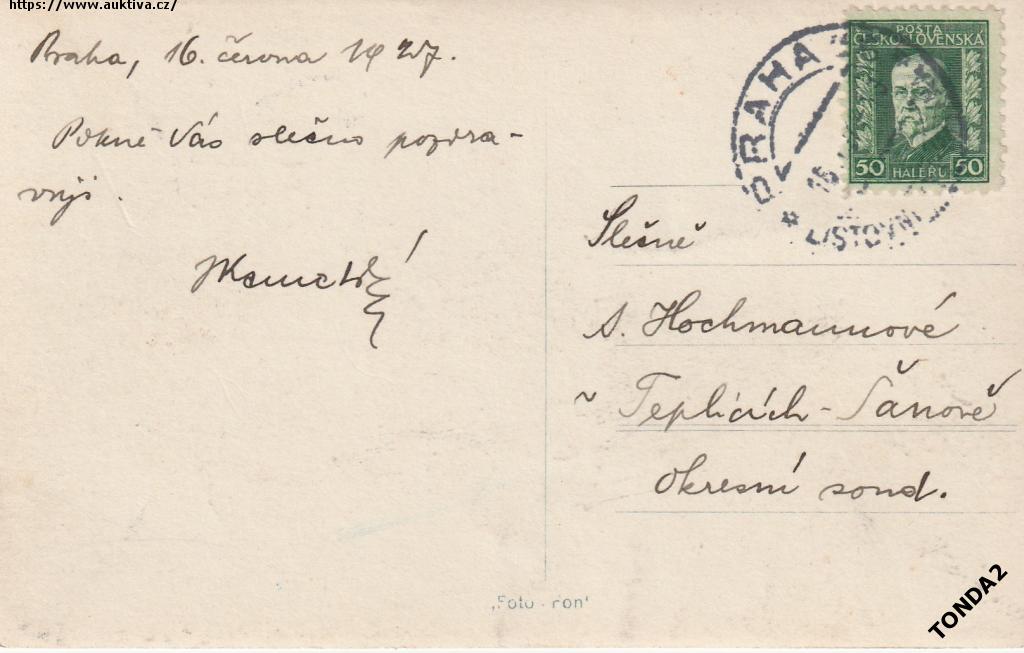 https://www.auktiva.cz/
Praha, 16. června 1927.
Pěkně Vás slečno pozdra-
vuji.
POŠTA
ČESKOSLOVENSKÁ
50 HALÉŘŮ 50
PRAHA
Slečně
A. Hochmannové
v Teplicích-Šanově
Okresní soud.
„Foto-Fon"
TONDA2